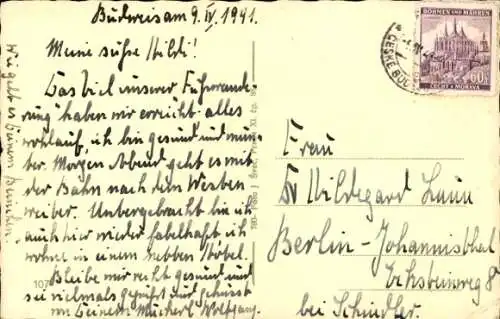 Budweis am 9. IV. 1941.
Meine süsse Hildi!
Das Ziel unserer
haben wir erreicht. alles
wohlauf, ich bin gesund und mun-
ter. Morgen Abend geht es mit
der Bahn nach dem
weiter. Untergebracht bin ich
auch hier wieder fabelhaft ich
wohne in einem netten
Bleibe mir recht gesund und
sei vielmals gegrüßt und geküsst
von Deinem Wolfgang.
Wie geht es
Deinem
107
BÖHMEN UND MÄHREN
60 h
ČECHY A MORAVA
ČESKÉ BUD
Frau
Hildegard
Berlin-Johannisthal
weg 8
bei Schindler.